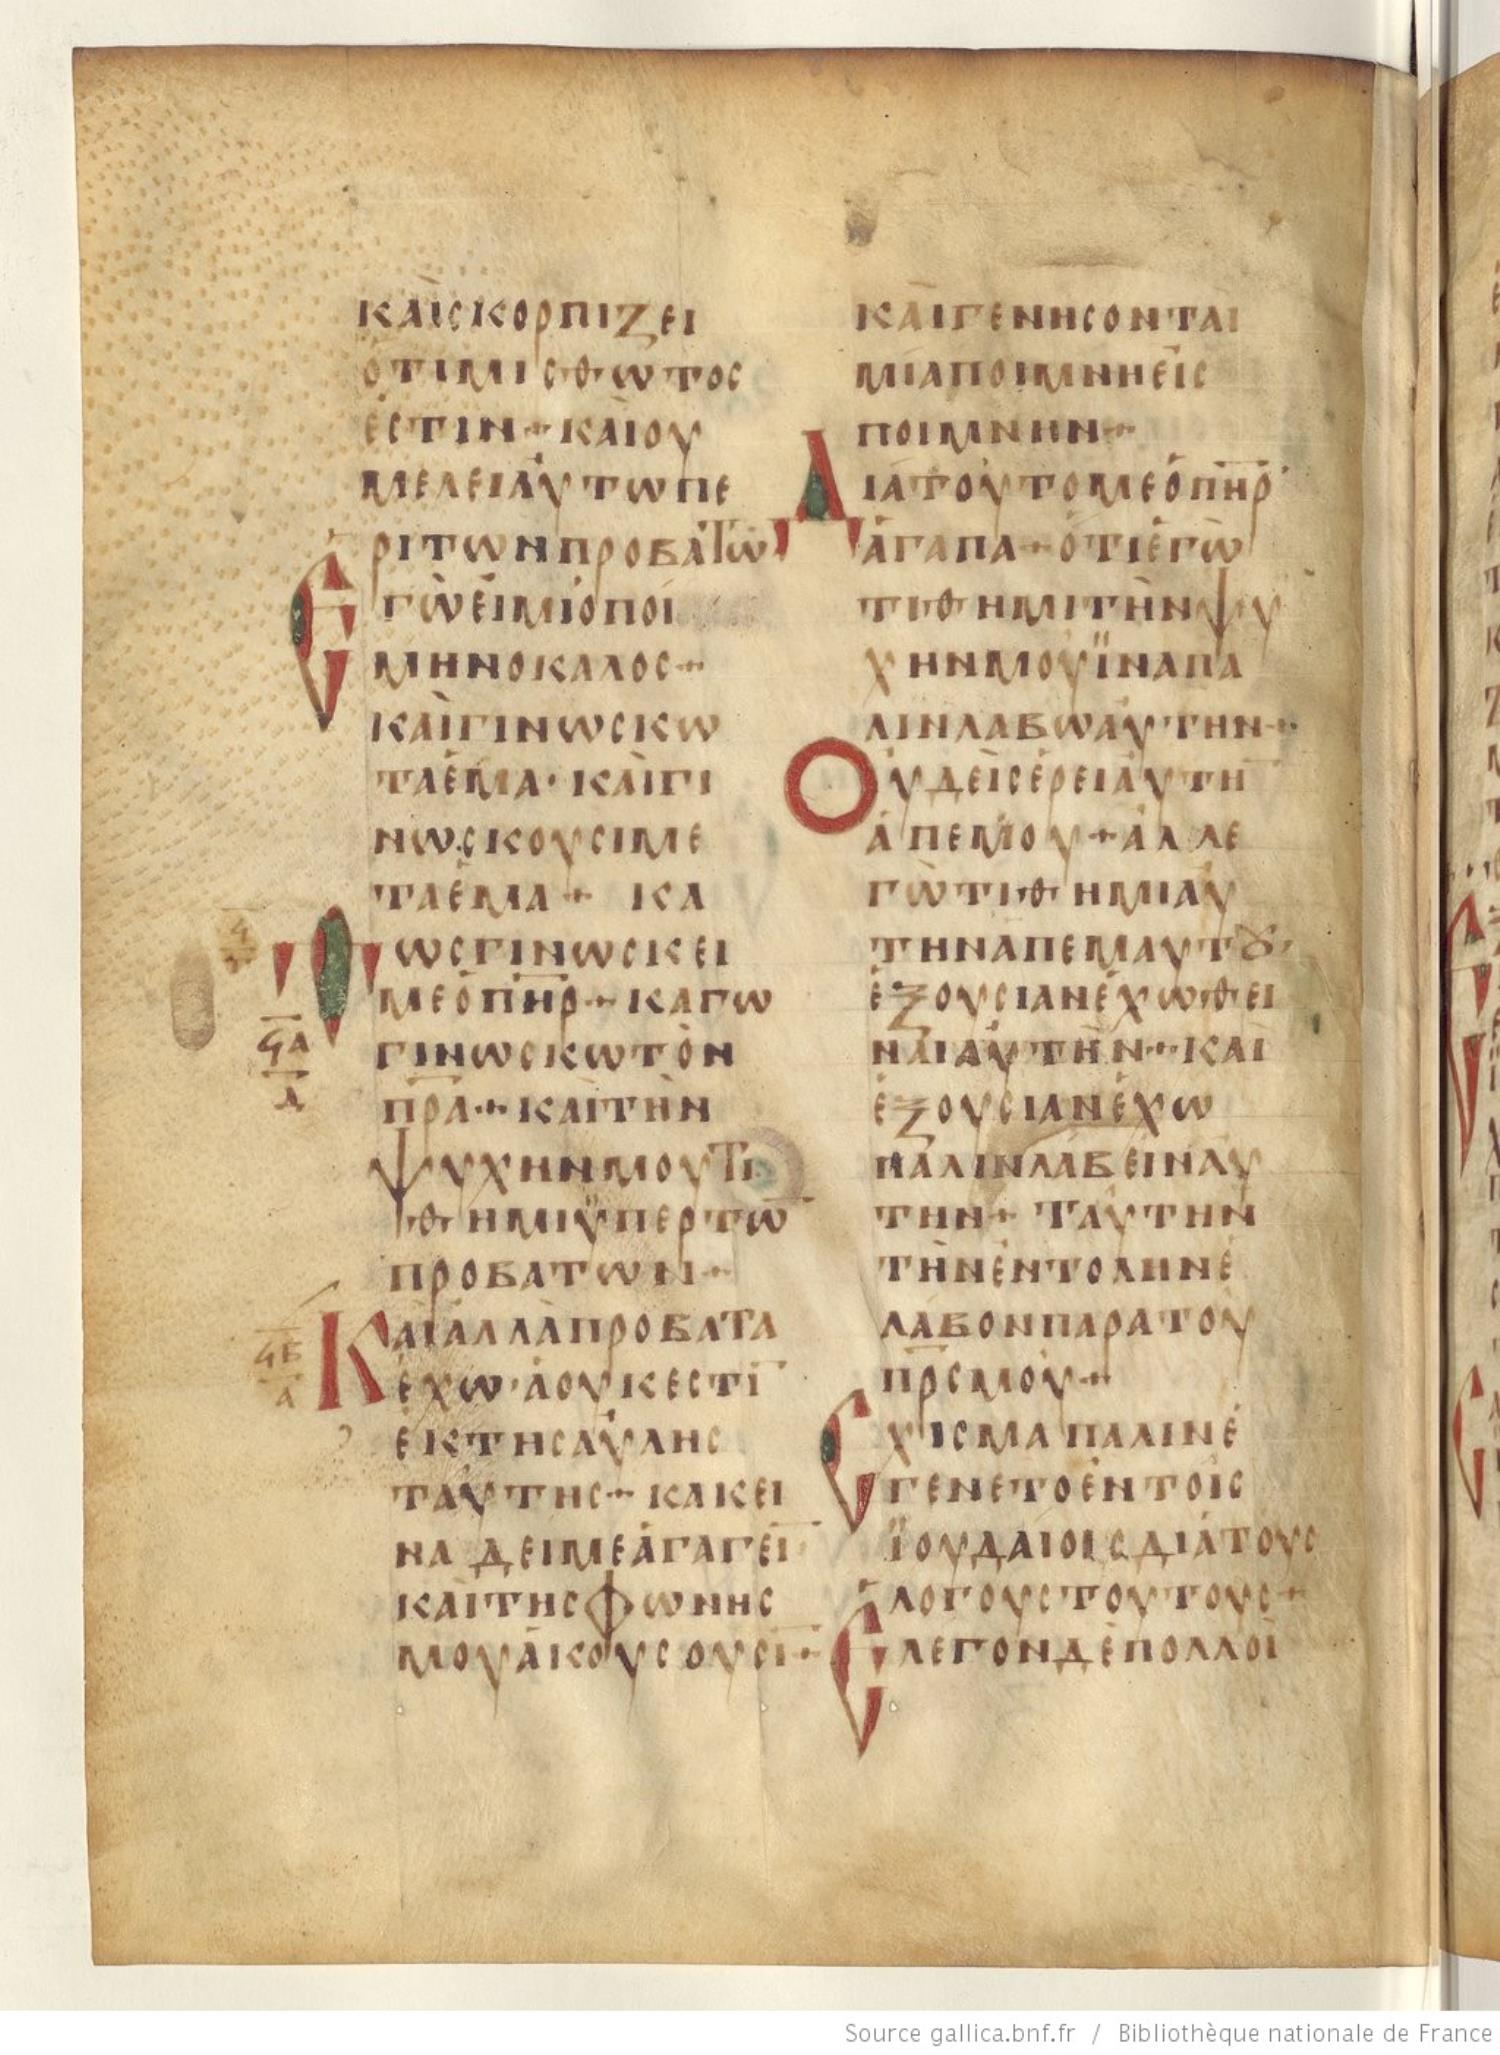 ΚΑῚΣΚΟΡΠΙΖΕΙ
ὉΤΙΜΙΣΘΩΤΟΣ
ἘΣΤΙΝ·ΚΑῚΟΥ
ΜΕΛΕΙΑΥΤΩΠΕ
ΡΙΤΩΝΠΡΟΒΑΤΩ̅
ΕΓΩΕΙΜΙΟΠΟΙ
ΜΗΝΟΚΑΛΟΣ·
ΚΑΙΓΙΝΩΣΚΩ
ΤΑΕΜΑ·ΚΑΙΓΙ
ΝΩΣΚΟΥΣΙΜΕ
ΤΑΕΜΑ· ΚΑ
ΘΩΣΓΙΝΩΣΚΕΙ
ΜΕΟΠ̅Η̅Ρ̅·ΚΑΓΩ
ϟΑ
Δ
ΓΙΝΩΣΚΩΤΟΝ
Π̅Ρ̅Α̅·ΚΑΙΤΗΝ
ΨΥΧΗΝΜΟΥΤΙ
ΘΗΜΙΫΠΕΡΤΩ̅
ΠΡΟΒΑΤΩΝ·
ϟΒ
Α
ΚΑΙΑΛΛΑΠΡΟΒΑΤΑ
ΕΧΩ·ΑΟΥΚΕΣΤΙ̅
ΕΚΤΗΣΑΥΛΗΣ
ΤΑΥΤΗΣ·ΚΑΚΕΙ
ΝΑΔΕΙΜΕΑΓΑΓΕΙ̅
ΚΑΙΤΗΣΦΩΝΗΣ
ΜΟΥΑΚΟΥΣΟΥΣΙ̅·
ΚΑΙΓΕΝΗΣΟΝΤΑΙ
ΜΙΑΠΟΙΜΝΗΕΙΣ
ΠΟΙΜΝΗΝ·
ΔΙΑΤΟΥΤΟΜΕΟΠ̅Η̅Ρ̅
ΑΓΑΠΑ·ΟΤΙΕΓΩ
ΤΙΘΗΜΙΤΗΝΨΥ
ΧΗΝΜΟΥΪΝΑΠΑ
ΛΙΝΛΑΒΩΑΥΤΗΝ·
ΟΥΔΕΙΣΕΡΕΙΑΥΤΗ̅
ΑΠΕΜΟΥ·ΑΛΛΕ
ΓΩΤΙΘΗΜΙΑΥ
ΤΗΝΑΠΕΜΑΥΤȢ·
ΕΞΟΥΣΙΑΝΕΧΩΘΕΙ
ΝΑΙΑΥΤΗΝ·ΚΑΙ
ΕΞΟΥΣΙΑΝΕΧΩ
ΠΑΛΙΝΛΑΒΕΙΝΑΥ
ΤΗΝ· ΤΑΥΤΗΝ
ΤΗΝΕΝΤΟΛΗΝΕ
ΛΑΒΟΝΠΑΡΑΤΟΥ
Π̅Ρ̅Σ̅ΜΟΥ·
ΣΧΙΣΜΑΠΑΛΙΝΕ
ΓΕΝΕΤΟΕΝΤΟΙΣ
ΪΟΥΔΑΙΟΙΣΔΙΑΤΟΥΣ
ΛΟΓΟΥΣΤΟΥΤΟΥΣ·
ΕΛΕΓΟΝΔΕΠΟΛΛΟΙ
Source gallica.bnf.fr / Bibliothèque nationale de France